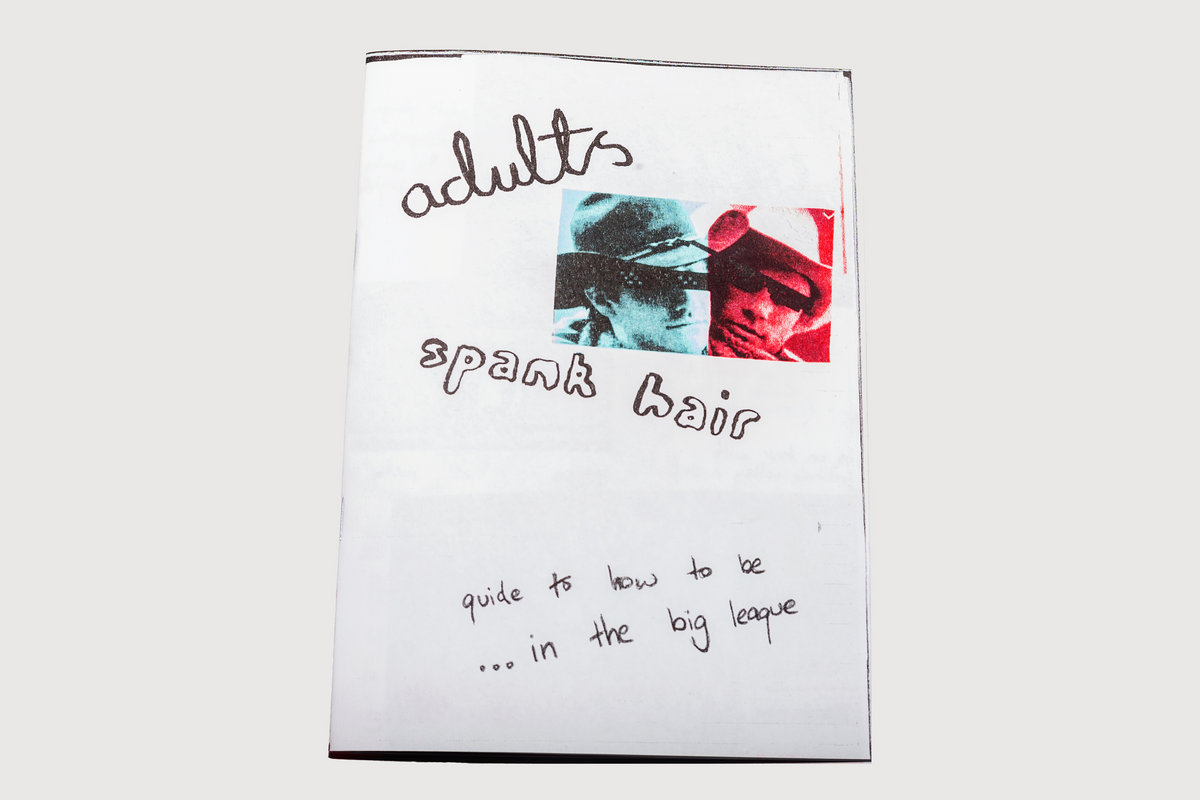 adults
spank hair
guide to how to be
... in the big league